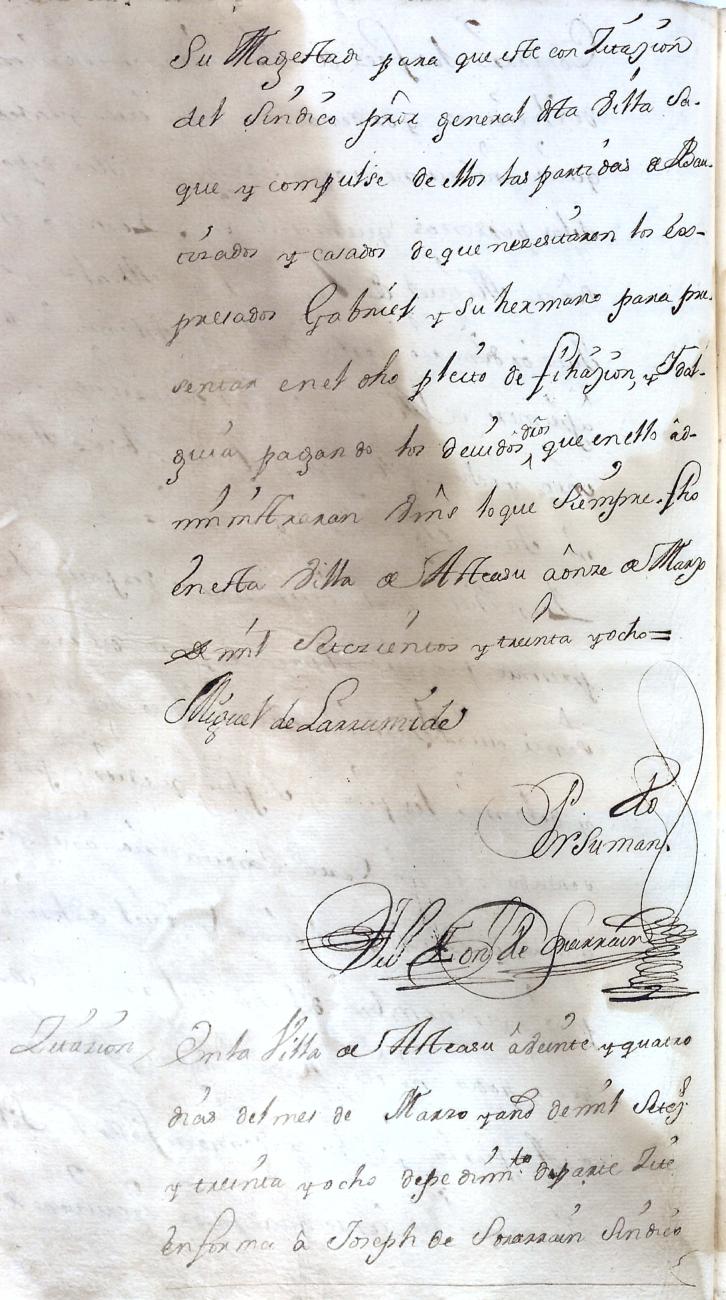 Su Magestad para que este con Zitazion
del Sindico prôr general dsta Villa Sa-
que y compulse de ellos las partidas de Bau-
tizados y casados de que nezesitaren los Ex-
presados Gabriel y su hermano para pre-
sentar en el dho pleito de filiazion, y Idal-
guia pagando los deuidos drôs que en ello âd-
ministraran lo que Siempre. fho
En esta Villa de Asteasu âonze de Marzo
de mil Setezientos y treinta y ocho=
Miguel de Larrumide
Por su man.do
de Sorarrain
Zitazion En la Villa de Asteasu âveinte y quatro
dias del mes de Marzo y año de mil Setez.s
y treinta y ocho de pedim.to de parte Zite
en forma â Joseph de Sorarrain Sindico